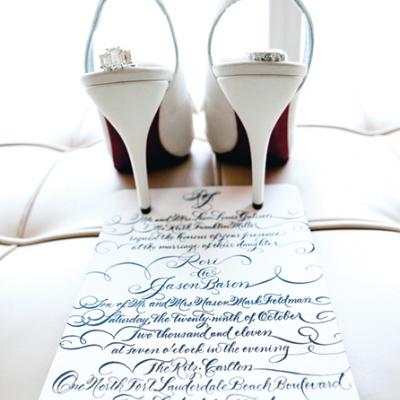 Mr. and Mrs.
request the honour of your presence
at the marriage of their daughter
Rori
to
Jason Baron
Son of Mr. and Mrs. Mason Mark Feldman
Saturday, the twenty-ninth of October
Two thousand and eleven
at seven o'clock in the evening
The Ritz-Carlton
One North Fort Lauderdale Beach Boulevard